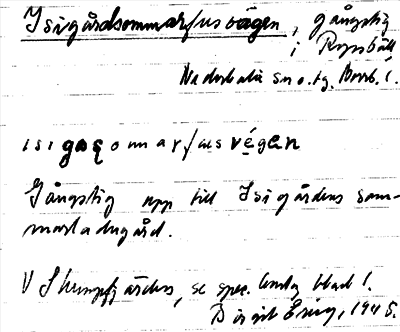 Isigårdsommarfusvägen, gångstig
i Rypsbäll
Naderbala sn o. tg, Borb. l.
isigaqomarfusvégen
Gångstig upp till Isigårdens som-
marladugård.
V Skumpfjärden, se spec. bladg blad 1.
Birgit Ering, 1945.